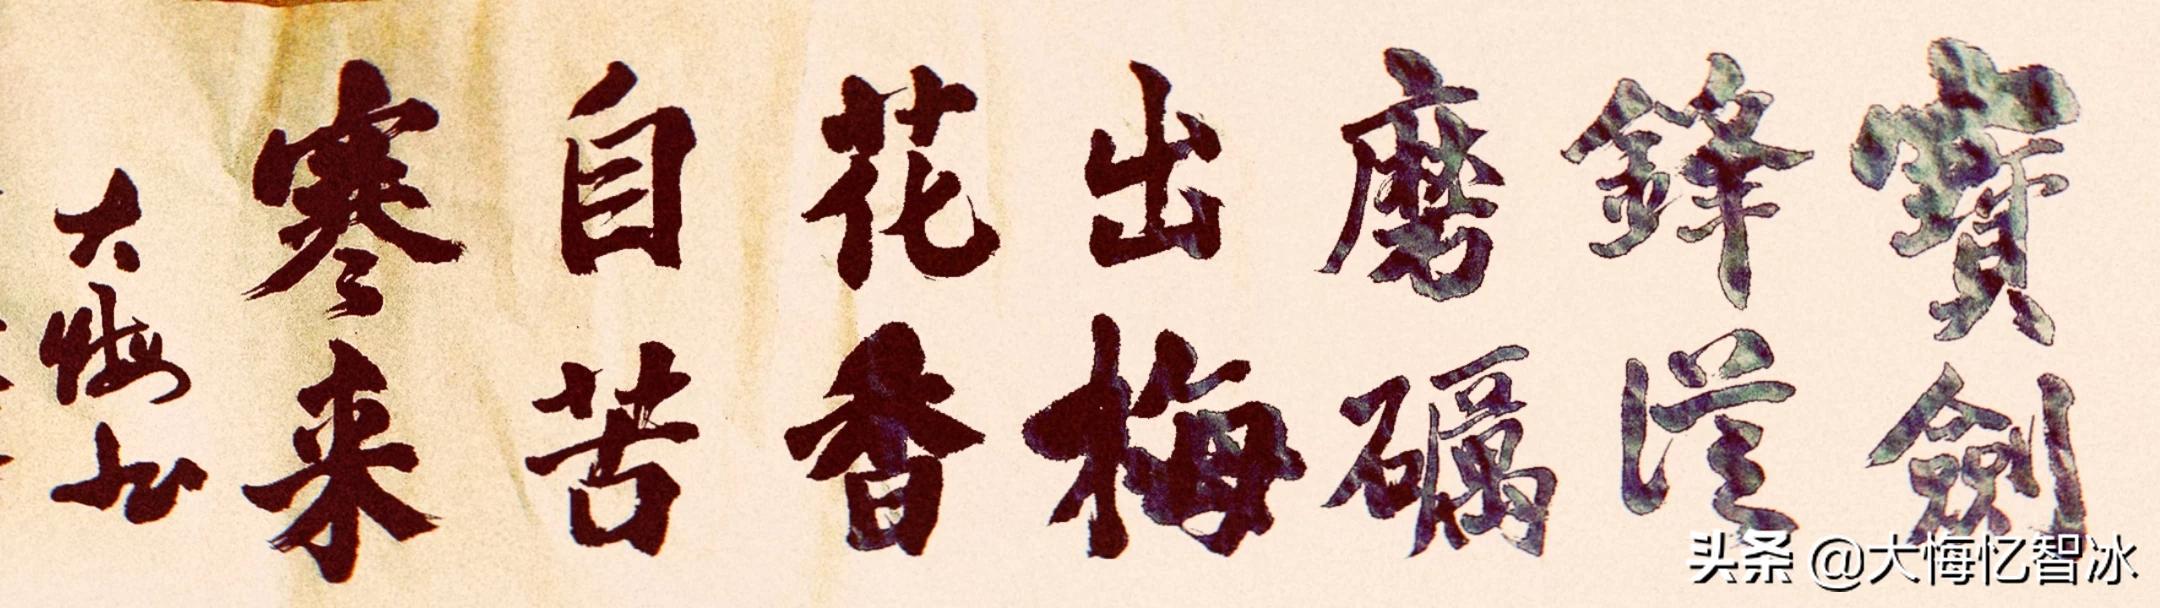 寶劍
鋒從
磨礪
出梅
花香
自苦
寒来
大悔书
头条 @大悔忆智冰